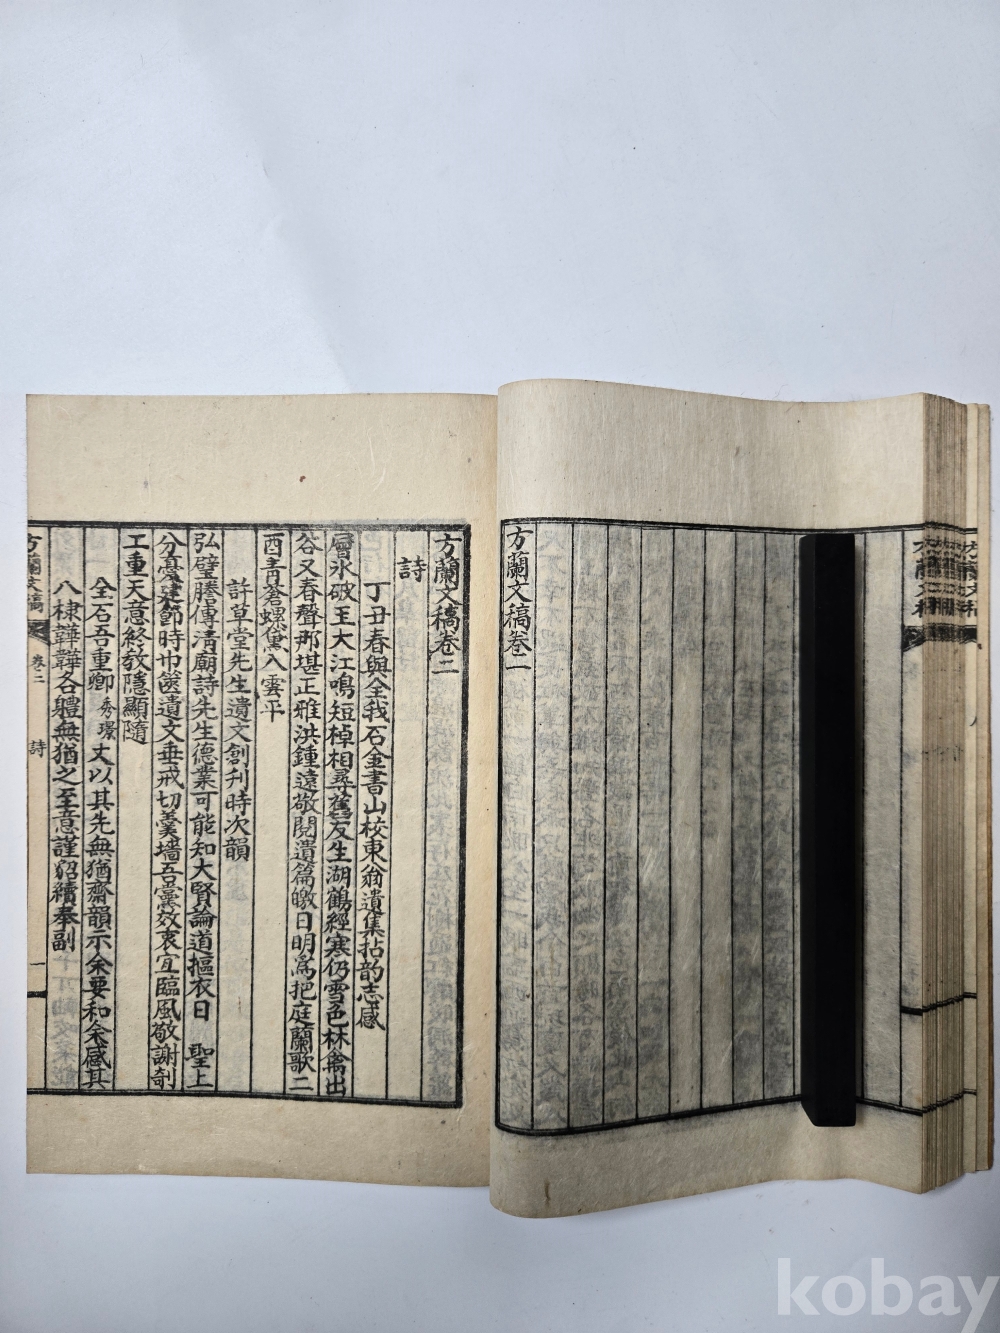 方蘭文稿卷一
方蘭文稿卷二
詩
丁丑春與全我石金書山校東翁遺集拈韵志感
層氷破玉大江鳴短棹相尋舊友生湖鶴經寒仍雪色林禽出
谷又春聲那堪正雅洪鍾遠敬閱遺篇皦日明爲把庭蘭歌二
酉青蒼螺黛入雲平
許草堂先生遺文創刋時次韻
弘璧騰傳清廟詩先生德業可能知大賢論道摳衣日 聖上
分憂建節時巾篋遺文垂戒切羹墻吾黨效衷宜臨風敬謝剞
工重天意終敎隱顯隨
全石吾重卿秀璟丈以其先無猶齋韻示余要和余感其
八棣韡韡各軆無猶之至意謹貂續奉副
方蘭文稿 卷二 詩 一
kobay